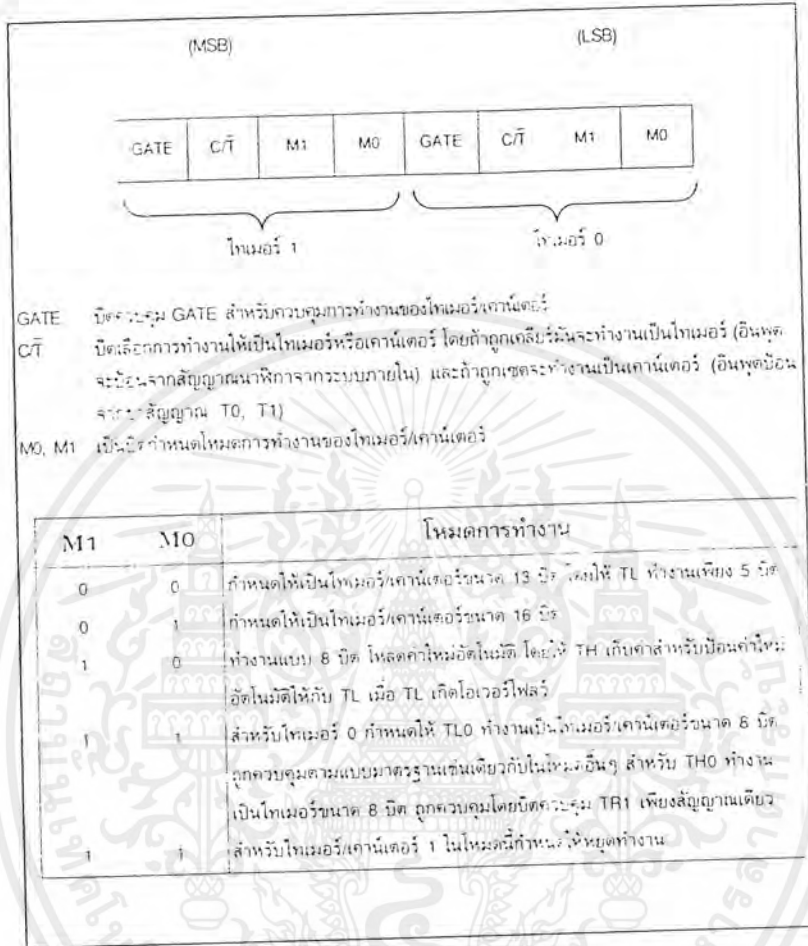 (MSB) (LSB)
GATE C/T̄ M1 M0 GATE C/T̄ M1 M0
ไทเมอร์ 1 ไทเมอร์ 0
GATE บิตควบคุม GATE สำหรับควบคุมการทำงานของไทเมอร์/เคาน์เตอร์
C/T̄ บิตเลือกการทำงานให้เป็นไทเมอร์หรือเคาน์เตอร์ โดยถ้าถูกเคลียร์มันจะทำงานเป็นไทเมอร์ (อินพุต
จะป้อนจากสัญญาณนาฬิกาจากระบบภายใน) และถ้าถูกเซตจะทำงานเป็นเคาน์เตอร์ (อินพุตป้อน
จากขาสัญญาณ T0, T1)
M0, M1 เป็นบิตกำหนดโหมดการทำงานของไทเมอร์/เคาน์เตอร์
M1 M0 โหมดการทำงาน
0 0 กำหนดให้เป็นไทเมอร์/เคาน์เตอร์ขนาด 13 บิต โดยให้ TL ทำงานเพียง 5 บิต
0 1 กำหนดให้เป็นไทเมอร์/เคาน์เตอร์ขนาด 16 บิต
1 0 ทำงานแบบ 8 บิต โหลดค่าใหม่อัตโนมัติ โดยให้ TH เก็บค่าสำหรับป้อนค่าใหม่
อัตโนมัติให้กับ TL เมื่อ TL เกิดโอเวอร์โฟลว์
1 1 สำหรับไทเมอร์ 0 กำหนดให้ TL0 ทำงานเป็นไทเมอร์/เคาน์เตอร์ขนาด 8 บิต
ถูกควบคุมตามแบบมาตรฐานเช่นเดียวกับในโหมดอื่นๆ สำหรับ TH0 ทำงาน
เป็นไทเมอร์ขนาด 8 บิต ถูกควบคุมโดยบิตควบคุม TR1 เพียงสัญญาณเดียว
1 1 สำหรับไทเมอร์/เคาน์เตอร์ 1 ในโหมดนี้กำหนดให้หยุดทำงาน